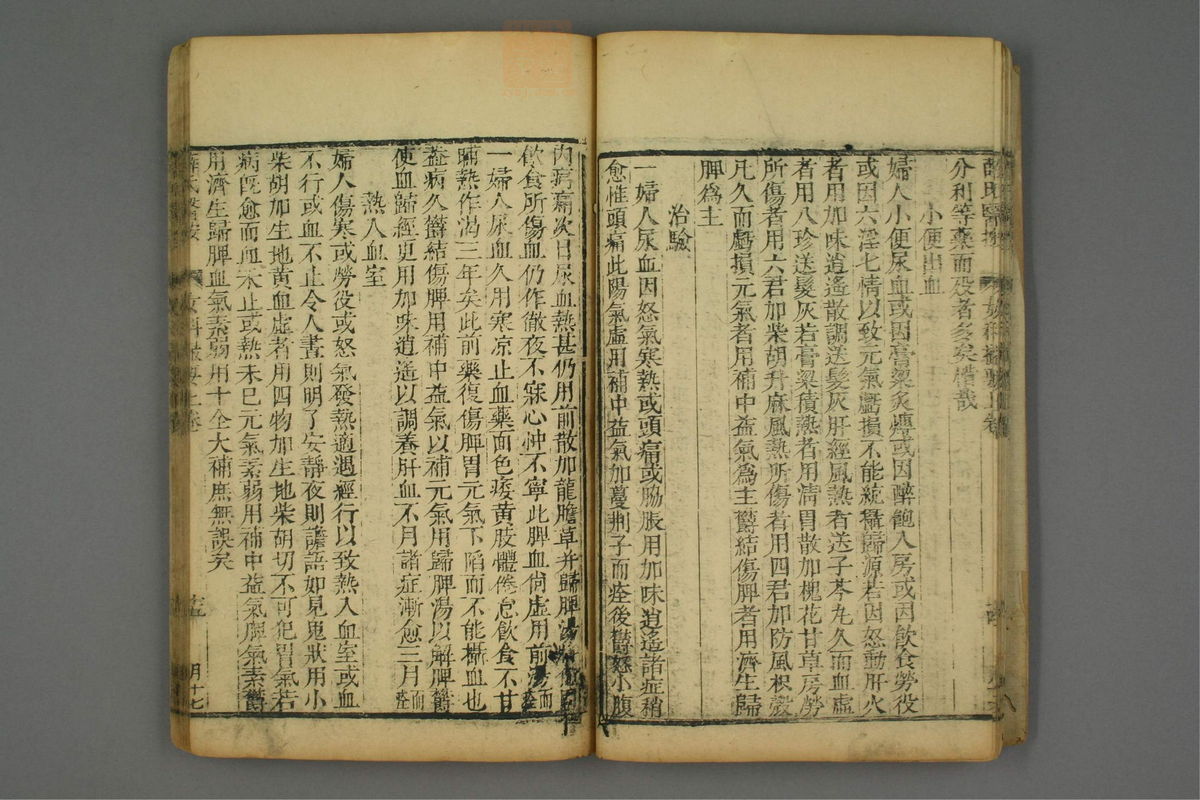 薛氏醫按 女科撮要上卷
分利等藥而歿者多矣惜哉
小便出血
婦人小便尿血或因膏粱炙煿或因醉飽入房或因飲食勞役
或因六淫七情以致元氣虧損不能統攝歸源若因怒動肝火
者用加味逍遙散調送髮灰肝經風熱者送子芩丸久而血虛
者用八珍送髮灰若膏粱積熱者用清胃散加槐花甘草房勞
所傷者用六君加柴胡升麻風熱所傷者用四君加防風枳殼
凡久而虧損元氣者用補中益氣為主欝結傷脾者用濟生歸
脾為主
治驗
一婦人尿血因怒氣寒熱或頭痛或脇脹用加味逍遙諸症稍
愈惟頭痛此陽氣虛用補中益氣加蔓荆子而痊後欝怒小腹
內疼痛次日尿血熱甚仍用前散加龍膽草并歸脾湯
飲食所傷血仍作徹夜不寐心忡不寧此脾血尙虛用前湯而痊
一婦人尿血久用寒凉止血藥面色痿黄肢體倦怠飲食不甘
晡熱作渴三年矣此前藥復傷脾胃元氣下陷而不能攝血也
蓋病久欝結傷脾用補中益氣以補元氣用歸脾湯以解脾欝
使血歸經更用加味逍遙以調養肝血不月諸症漸愈三月而痊
熱入血室
婦人傷寒或勞役或怒氣發熱適遇經行以致熱入血室或血
不行或血不止令人晝則明了安靜夜則譫語如見鬼狀用小
柴胡加生地黄血虛者用四物加生地柴胡切不可犯胃氣若
病旣愈而血未止或熱未已元氣素弱用補中益氣脾氣素欝
用濟生歸脾血氣素弱用十全大補庶無誤矣
薛氏醫按 女科撮要上卷 十五 月十七